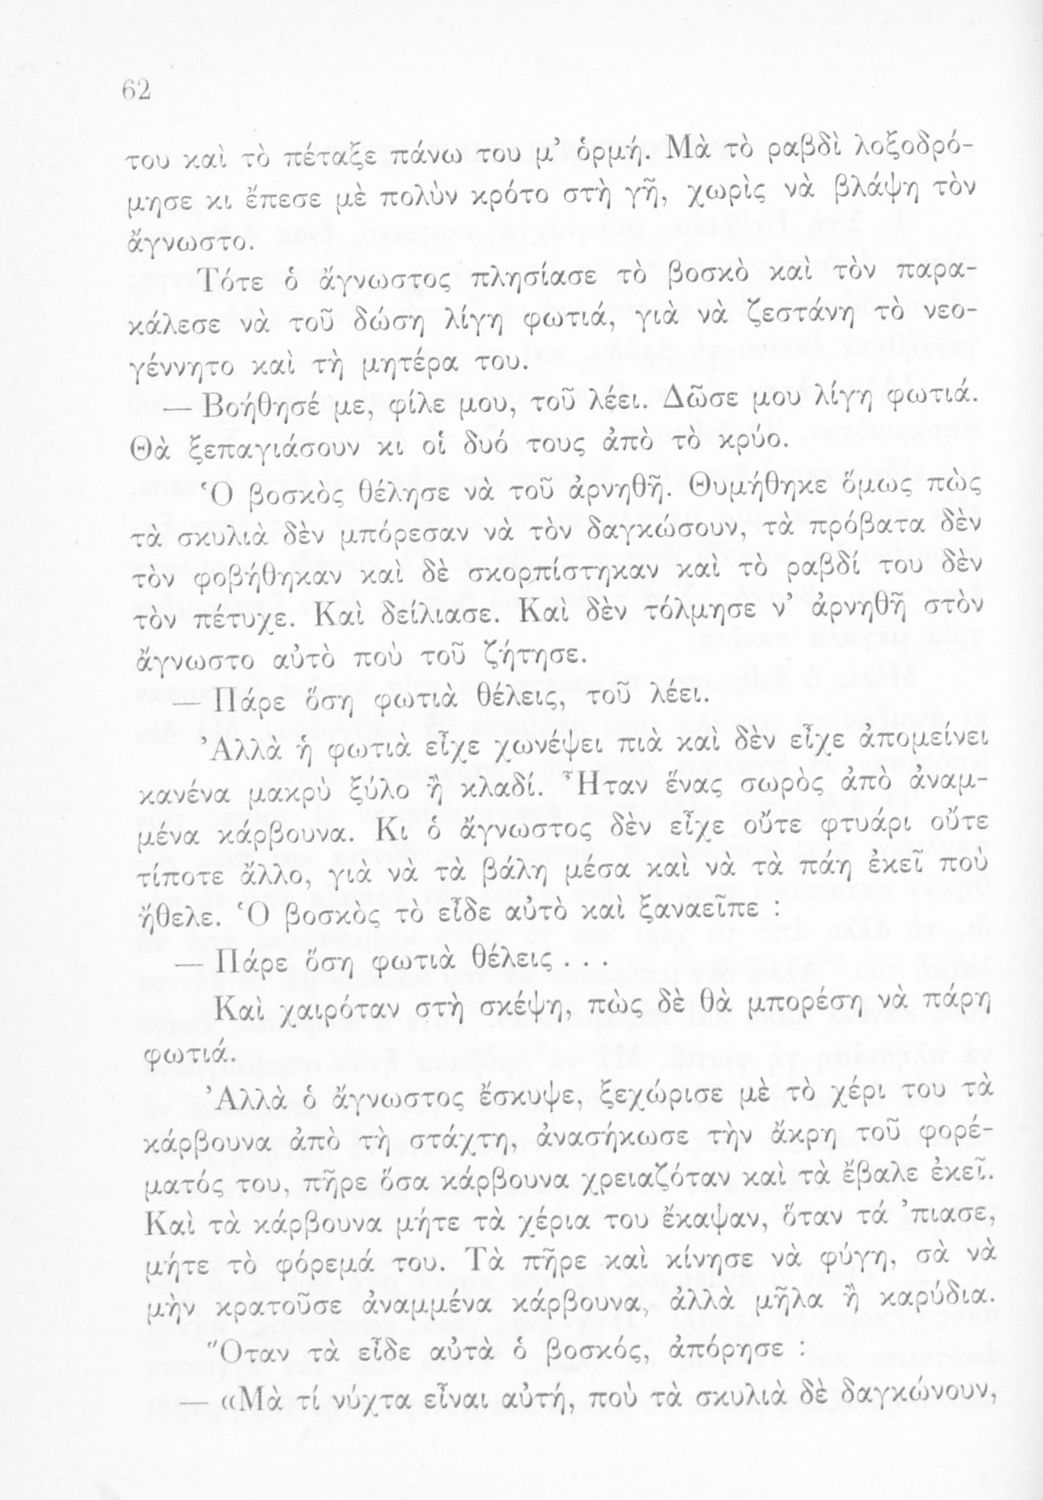 62
του καὶ τὸ πέταξε πάνω του μ’ ὁρμή. Μὰ τὸ ραβδὶ λοξοδρό-
μησε κι ἔπεσε μὲ πολὺν κρότο στὴ γῆ, χωρὶς νὰ βλάψη τὸν
ἄγνωστο.
Τότε ὁ ἄγνωστος πλησίασε τὸ βοσκὸ καὶ τὸν παρα-
κάλεσε νὰ τοῦ δώση λίγη φωτιά, γιὰ νὰ ζεστάνη τὸ νεο-
γέννητο καὶ τὴ μητέρα του.
— Βοήθησέ με, φίλε μου, τοῦ λέει. Δῶσε μου λίγη φωτιά.
Θὰ ξεπαγιάσουν κι οἱ δυό τους ἀπὸ τὸ κρύο.
Ὁ βοσκὸς θέλησε νὰ τοῦ ἀρνηθῆ. Θυμήθηκε ὅμως πὼς
τὰ σκυλιὰ δὲν μπόρεσαν νὰ τὸν δαγκώσουν, τὰ πρόβατα δὲν
τὸν φοβήθηκαν καὶ δὲ σκορπίστηκαν καὶ τὸ ραβδί του δὲν
τὸν πέτυχε. Καὶ δείλιασε. Καὶ δὲν τόλμησε ν’ ἀρνηθῆ στὸν
ἄγνωστο αὐτὸ ποὺ τοῦ ζήτησε.
— Πάρε ὅση φωτιὰ θέλεις, τοῦ λέει.
Ἀλλὰ ἡ φωτιὰ εἶχε χωνέψει πιὰ καὶ δὲν εἶχε ἀπομείνει
κανένα μακρὺ ξύλο ἢ κλαδί. Ἦταν ἕνας σωρὸς ἀπὸ ἀναμ-
μένα κάρβουνα. Κι ὁ ἄγνωστος δὲν εἶχε οὔτε φτυάρι οὔτε
τίποτε ἄλλο, γιὰ νὰ τὰ βάλη μέσα καὶ νὰ τὰ πάη ἐκεῖ ποὺ
ἤθελε. Ὁ βοσκὸς τὸ εἶδε αὐτὸ καὶ ξαναεῖπε :
— Πάρε ὅση φωτιὰ θέλεις . . .
Καὶ χαιρόταν στὴ σκέψη, πὼς δὲ θὰ μπορέση νὰ πάρη
φωτιά.
Ἀλλὰ ὁ ἄγνωστος ἔσκυψε, ξεχώρισε μὲ τὸ χέρι του τὰ
κάρβουνα ἀπὸ τὴ στάχτη, ἀνασήκωσε τὴν ἄκρη τοῦ φορέ-
ματός του, πῆρε ὅσα κάρβουνα χρειαζόταν καὶ τὰ ἔβαλε ἐκεῖ.
Καὶ τὰ κάρβουνα μήτε τὰ χέρια του ἔκαψαν, ὅταν τά ’πιασε,
μήτε τὸ φόρεμά του. Τὰ πῆρε καὶ κίνησε νὰ φύγη, σὰ νὰ
μὴν κρατοῦσε ἀναμμένα κάρβουνα, ἀλλὰ μῆλα ἢ καρύδια.
Ὅταν τὰ εἶδε αὐτὰ ὁ βοσκός, ἀπόρησε :
— «Μὰ τί νύχτα εἶναι αὐτή, ποὺ τὰ σκυλιὰ δὲ δαγκώνουν,